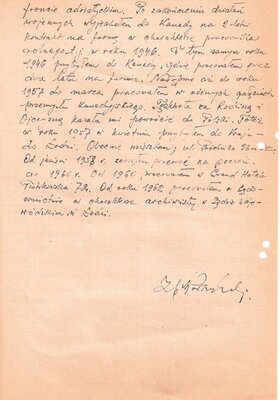 froncie adriatickim. Po zakończeniu działań
wojennych wyjechałem do Kanady na 2-letni
kontrakt na farmę w charakterze pracownika
rolnego w roku 1946. W tym samym roku
1946 przybyłem do Kanady, gdzie pracowałem przez
dwa lata na farmie. Następnie aż do roku
1957 do marca pracowałem w różnych gałęziach
przemysłu Kanadyjskiego. Tęsknota za Rodziną i
Ojczyzną kazała mi powrócić do Polski. Toteż
w roku 1957 w kwietniu przybyłem do Kraju -
do Łodzi. Obecnie mieszkam, ul.
Od jesieni 1958 zacząłem pracować na poczcie
do 1960 r. Od 1960 pracowałem w Grand Hotelu
Piotrkowska 72. Od roku 1962 pracowałem w Sądo-
wnictwie w charakterze archiwisty w Sądzie Woje-
wódzkim w Łodzi.